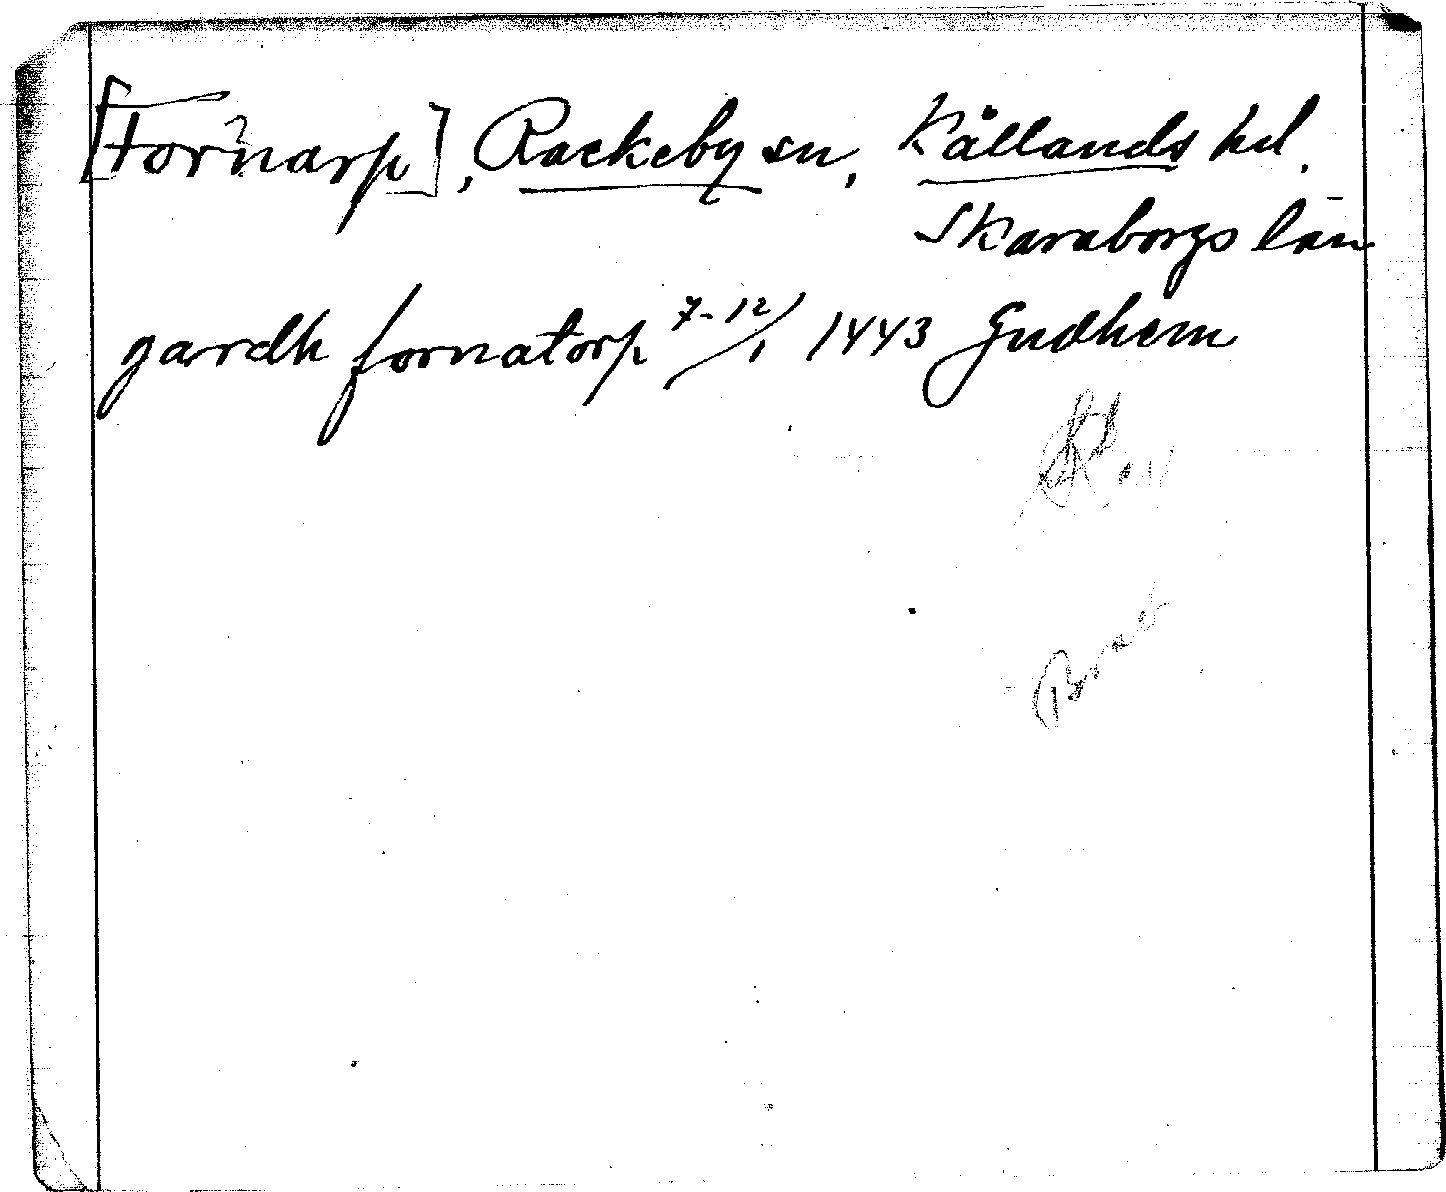 [Fornarp], Rackeby sn, Kållands hd.
Skaraborgs län
gardh fornatorp 7-12/1 1443 Gudhem